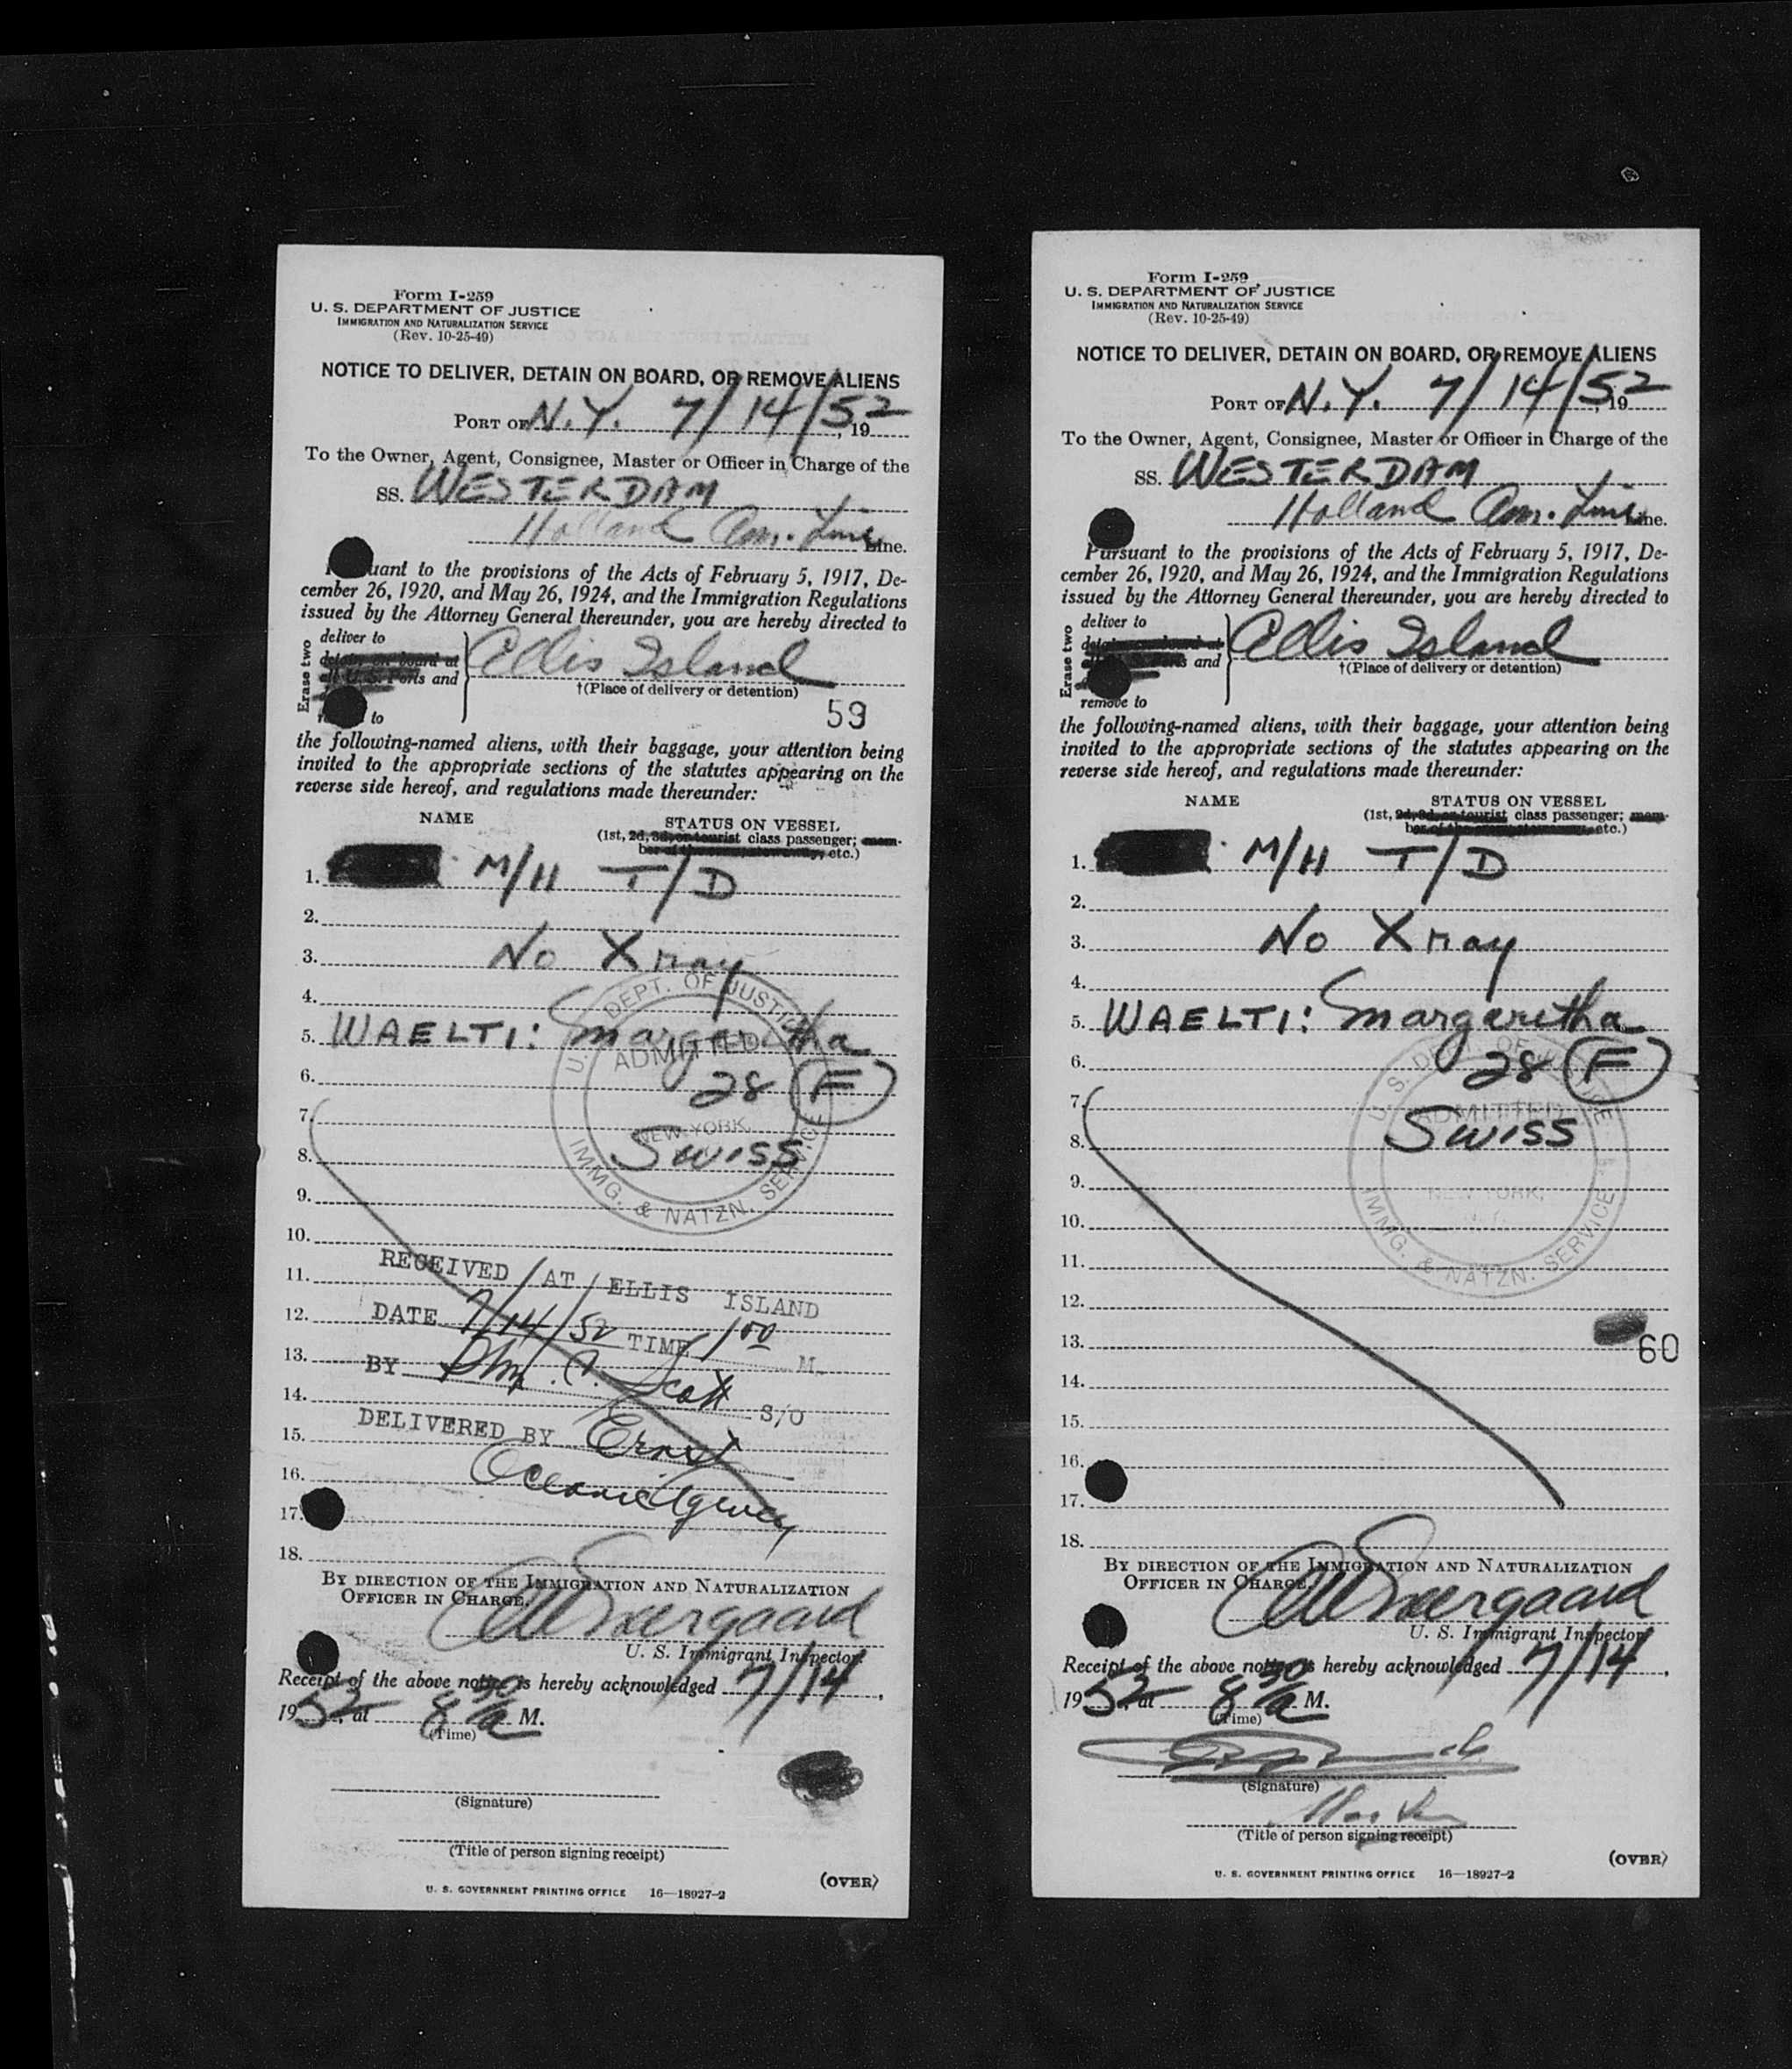 Form I-259
U. S. DEPARTMENT OF JUSTICE
IMMIGRATION AND NATURALIZATION SERVICE
(Rev. 10-25-49)
NOTICE TO DELIVER, DETAIN ON BOARD, OR REMOVE ALIENS
PORT OF N.Y. 7/14/52, 19
To the Owner, Agent, Consignee, Master or Officer in Charge of the
SS. WESTERDAM
Holland Am. Line Line.
uant to the provisions of the Acts of February 5, 1917, De-
cember 26, 1920, and May 26, 1924, and the Immigration Regulations
issued by the Attorney General thereunder, you are hereby directed to
Erase two
deliver to
detain on board at
all U. S. Ports and
to
Ellis Island
†(Place of delivery or detention)
59
the following-named aliens, with their baggage, your attention being
invited to the appropriate sections of the statutes appearing on the
reverse side hereof, and regulations made thereunder:
NAME STATUS ON VESSEL
(1st, 2d, 3d, or tourist class passenger; mem-
ber of the crew, stowaway, etc.)
1. M/H T/D
2.
3. No Xray
4.
5. WAELTI: Margaritha
6. 28 (F)
7.
8. Swiss
9.
10.
U. S. DEPT. OF JUSTICE
ADMITTED
NEW YORK,
IMMG. & NATZN. SERVICE
11. RECEIVED AT ELLIS ISLAND
12. DATE 7/14/52 TIME 1 00 M.
13. BY Scott S/O
14.
15. DELIVERED BY Ernst
16. Oceanic Agency
17.
18.
BY DIRECTION OF THE IMMIGRATION AND NATURALIZATION
OFFICER IN CHARGE.
U. S. Immigrant Inspector.
Receipt of the above notice is hereby acknowledged 7/14,
1952, at 8 30 a M.
(Time)
(Signature)
(Title of person signing receipt)
(OVER)
U. S. GOVERNMENT PRINTING OFFICE 16—18927-2
Form I-259
U. S. DEPARTMENT OF JUSTICE
IMMIGRATION AND NATURALIZATION SERVICE
(Rev. 10-25-49)
NOTICE TO DELIVER, DETAIN ON BOARD, OR REMOVE ALIENS
PORT OF N.Y. 7/14/52, 19
To the Owner, Agent, Consignee, Master or Officer in Charge of the
SS. WESTERDAM
Holland Am. Line Line.
Pursuant to the provisions of the Acts of February 5, 1917, De-
cember 26, 1920, and May 26, 1924, and the Immigration Regulations
issued by the Attorney General thereunder, you are hereby directed to
Erase two
deliver to
detain on board at
all Ports and
remove to
Ellis Island
†(Place of delivery or detention)
the following-named aliens, with their baggage, your attention being
invited to the appropriate sections of the statutes appearing on the
reverse side hereof, and regulations made thereunder:
NAME STATUS ON VESSEL
(1st, 2d, 3d, or tourist class passenger; mem-
ber of the crew, stowaway, etc.)
1. M/H T/D
2.
3. No Xray
4.
5. WAELTI: Margaritha
6. 28 (F)
7.
8. Swiss
9.
10.
11.
12.
U. S. DEPT. OF JUSTICE
ADMITTED
NEW YORK,
IMMG. & NATZN. SERVICE
13. 60
14.
15.
16.
17.
18.
BY DIRECTION OF THE IMMIGRATION AND NATURALIZATION
OFFICER IN CHARGE.
U. S. Immigrant Inspector.
Receipt of the above notice is hereby acknowledged 7/14,
1952, at 8 30 a M.
(Time)
(Signature)
(Title of person signing receipt)
(OVER)
U. S. GOVERNMENT PRINTING OFFICE 16—18927-2